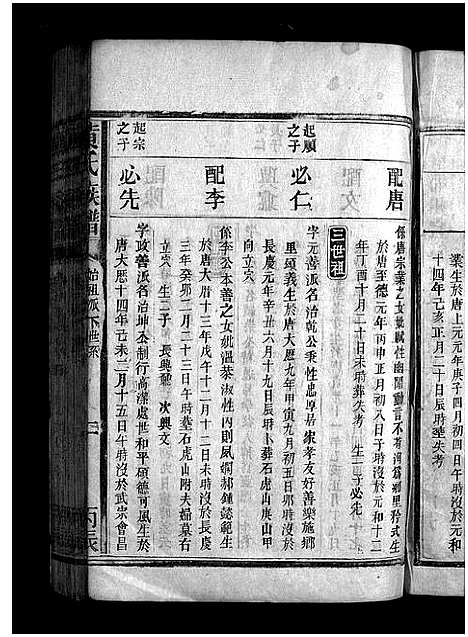 梁生於唐上元元年庚子四月初四日辰時沒於元和
十四年己亥正月二十日辰時塟失考
配唐
係唐宗業之女性幽閒動言不苟鄉里矜式生
於唐至德元年丙申正月初八日子時沒於元和十二
年丁酉十月二十日未時塟失考 生二子必先
三世祖
起順之子
必仁
字元善派名治乾公秉性忠厚居家孝友好善樂施鄉
里頌義生於唐大歷九年甲寅九月初五日卯時沒於
長慶元年辛丑六月十九日辰時卜葬石虎山庚山甲
向立穴
配李
係李公本善之女秕溫恭淑性內則風嫻郝鍾懿範生
於唐大曆十三年戊午十二月十二日未時沒於長慶
三年癸卯二月二十三日午時塟石虎山附夫婦墓右
立穴 生二子 長興 次興文
起宗之子
必先
字政善派名治坤公制行高潔處世和平碩德可風生於
唐大歷十四年己未三月十五日午時沒於武宗會昌
黃氏族譜
始祖派下世系